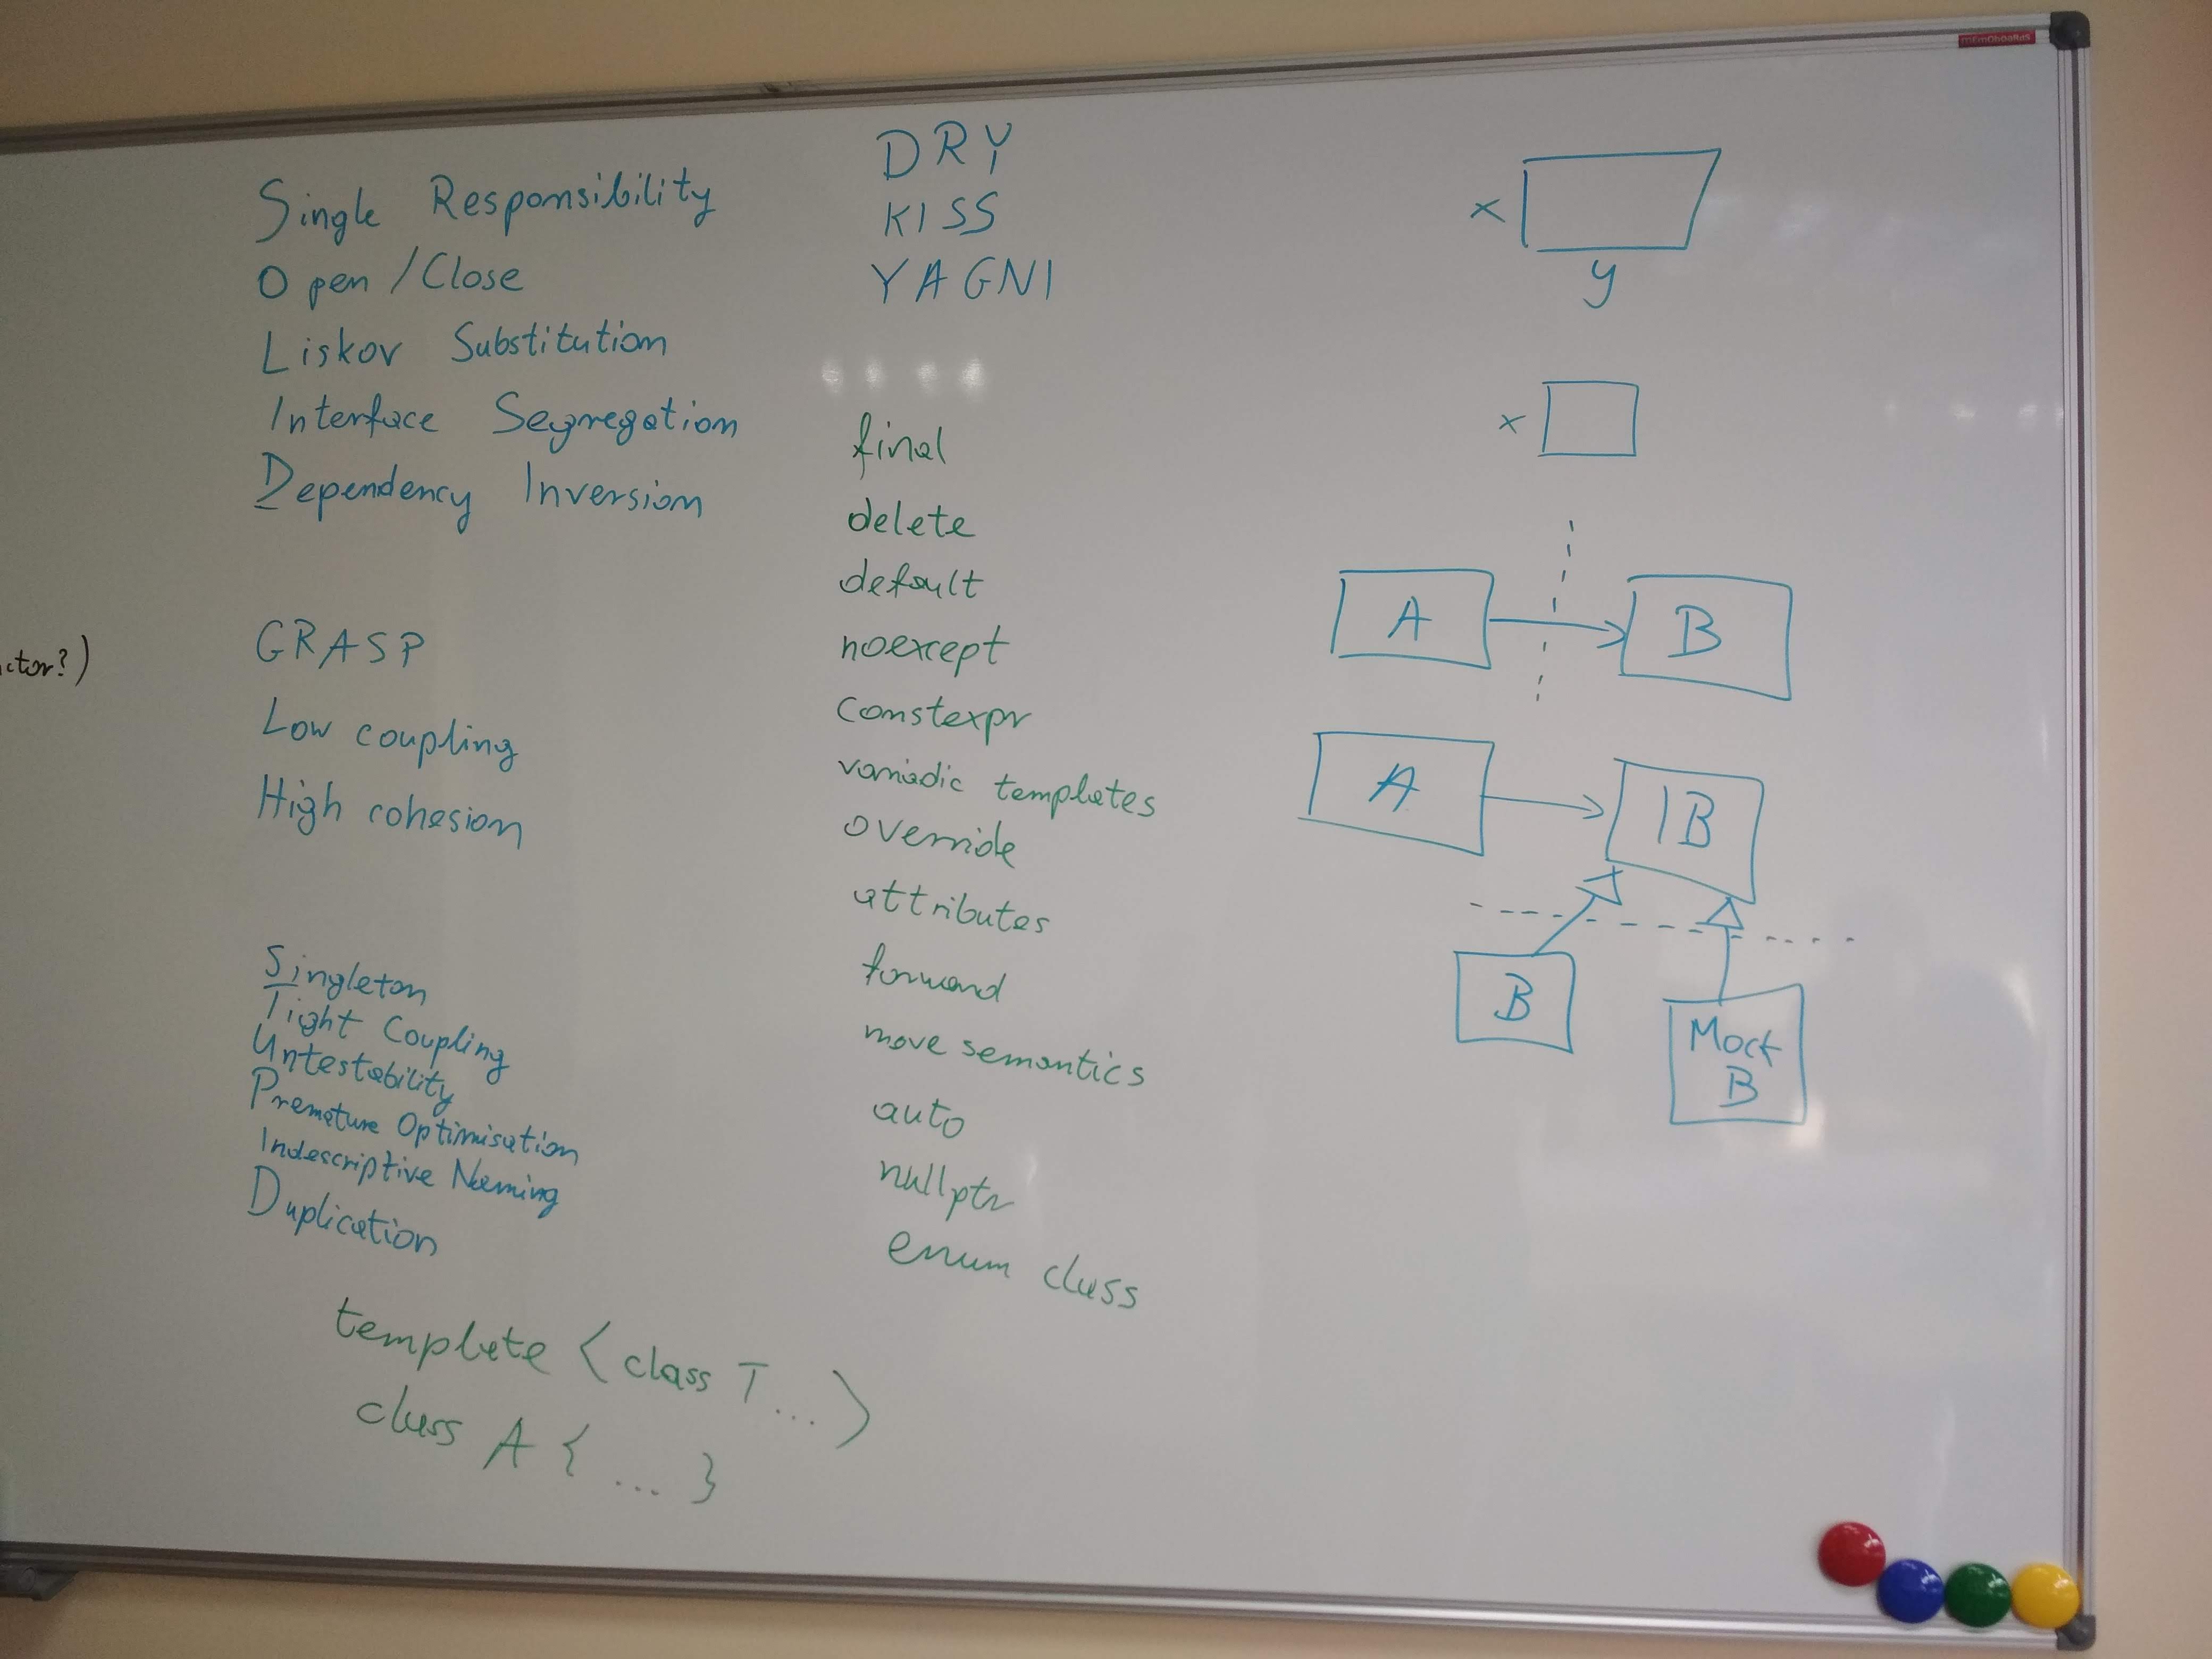 memoboards
Single Responsibility
Open/Close
Liskov Substitution
Interface Segregation
Dependency Inversion
GRASP
Low coupling
High cohesion
Singleton
Tight Coupling
Untestability
Premature Optimisation
Indescriptive Naming
Duplication
template <class T...>
class A { ... }
DRY
KISS
YAGNI
final
delete
default
noexcept
constexpr
variadic templates
override
attributes
forward
move semantics
auto
nullptr
enum class
x
y
x
A
B
A
IB
B
Mock
B